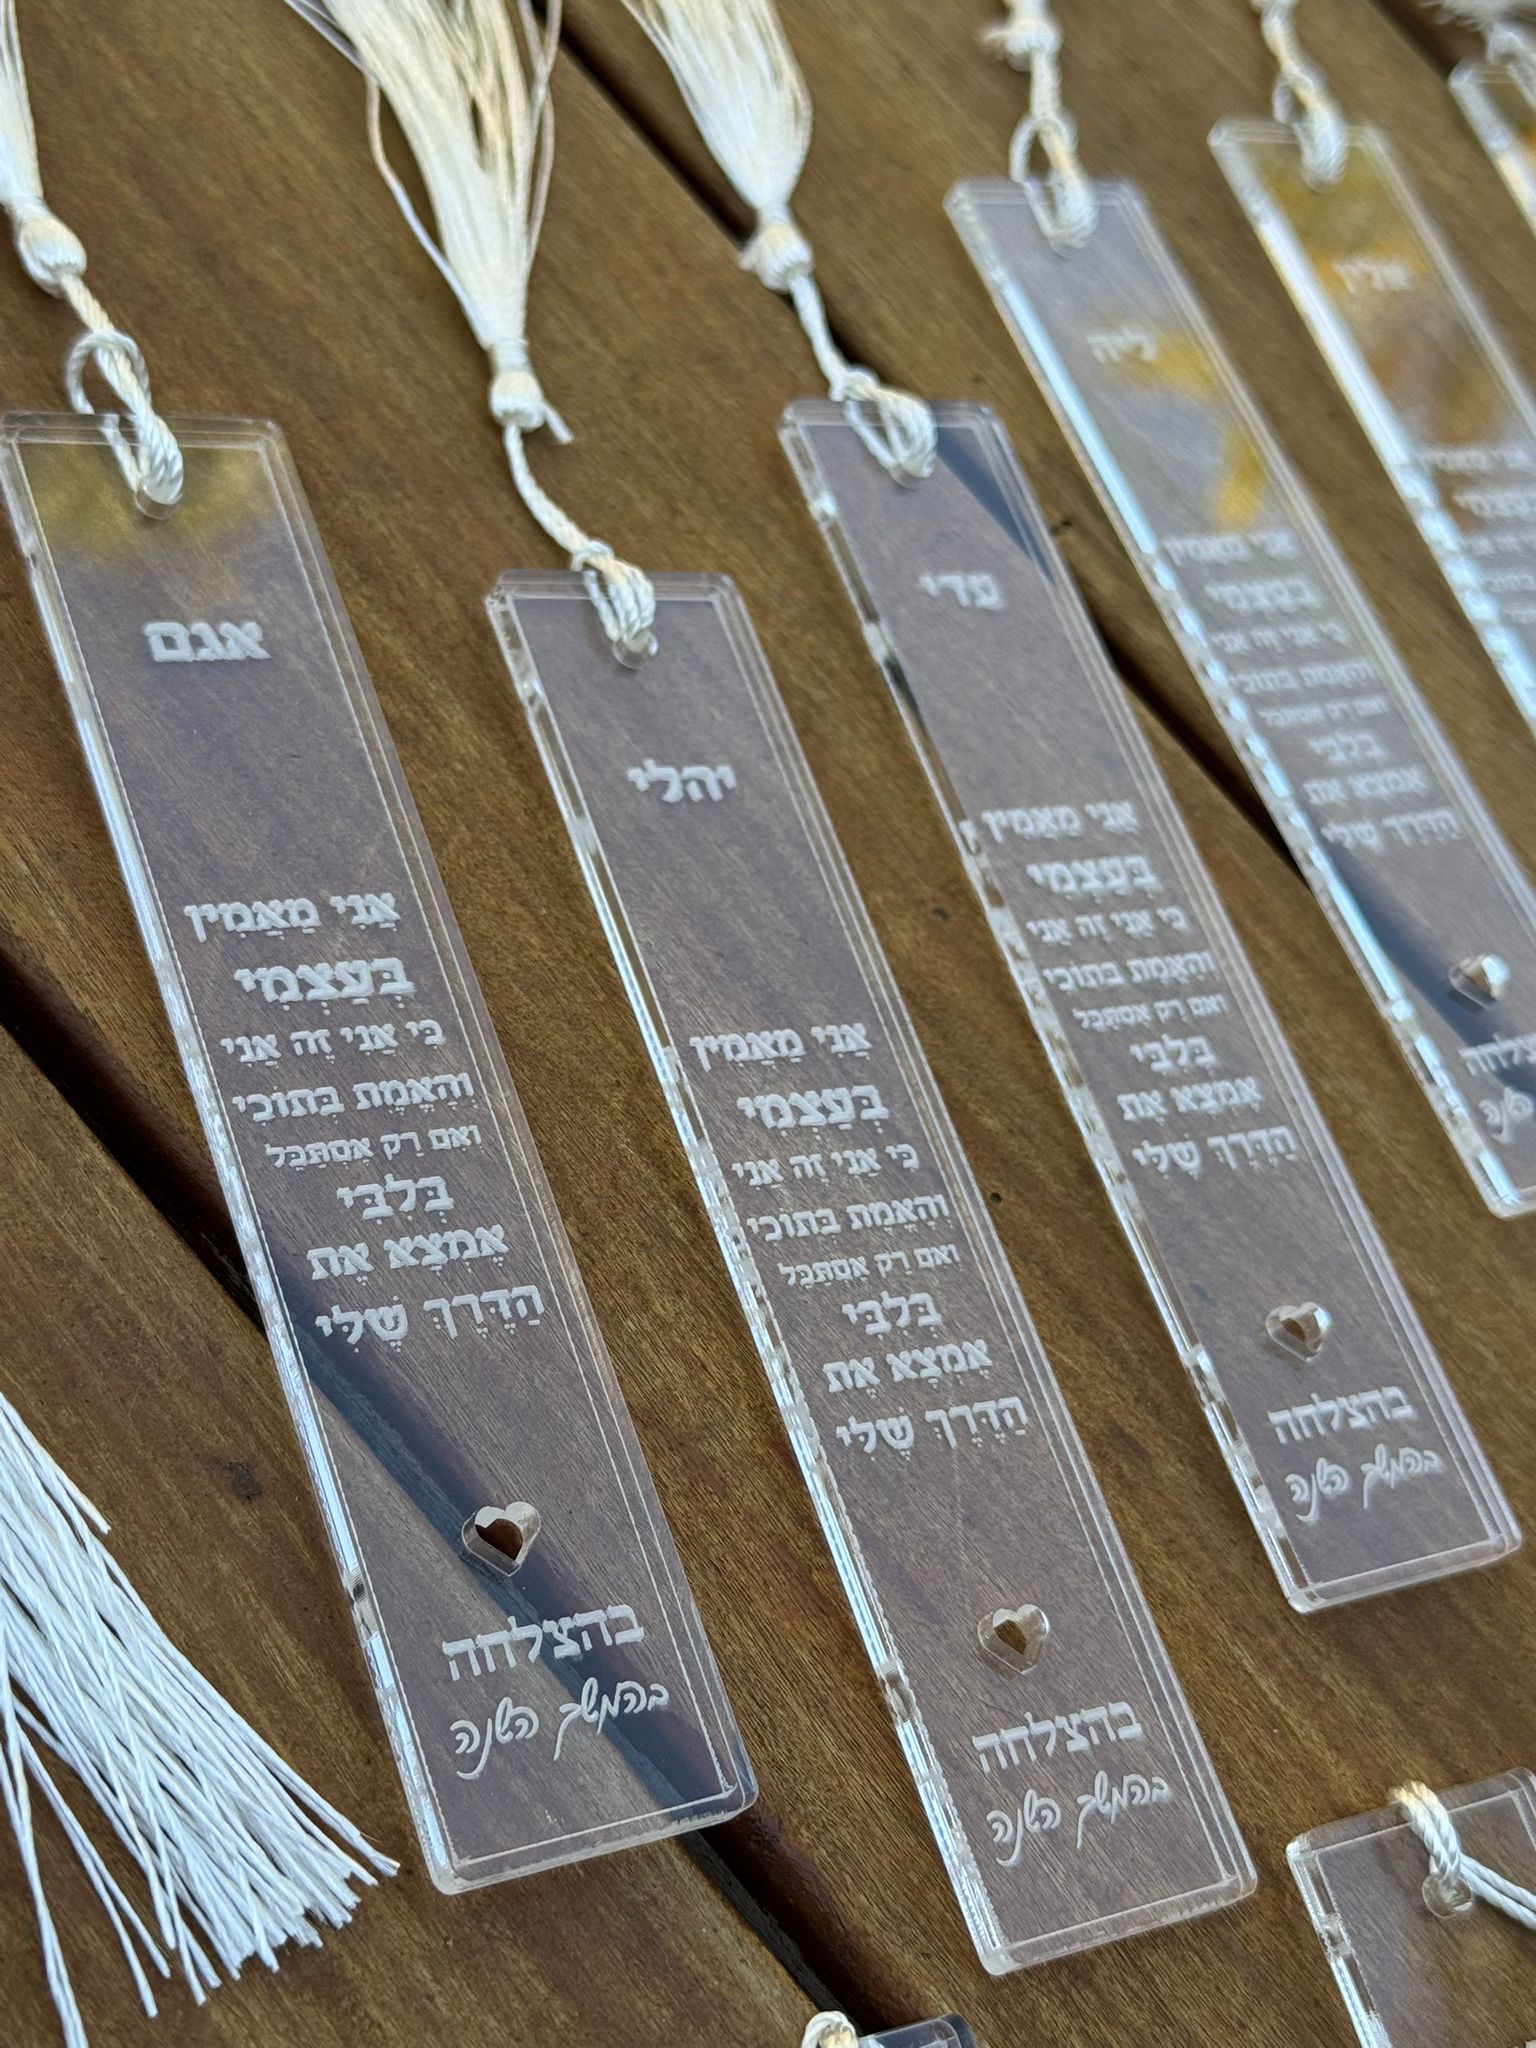 אגם
אֲנִי מַאֲמִין
בְּעַצְמִי
כִּי אֲנִי זֶה אֲנִי
וְהָאֱמֶת בְּתוֹכִי
וְאִם רַק אֶסְתַּכֵּל
בְּלִבִּי
אֶמְצָא אֶת
הַדֶּרֶךְ שֶׁלִּי
בהצלחה
בהמשך השנה
יהלי
אֲנִי מַאֲמִין
בְּעַצְמִי
כִּי אֲנִי זֶה אֲנִי
וְהָאֱמֶת בְּתוֹכִי
וְאִם רַק אֶסְתַּכֵּל
בְּלִבִּי
אֶמְצָא אֶת
הַדֶּרֶךְ שֶׁלִּי
בהצלחה
בהמשך השנה
עדי
אֲנִי מַאֲמִין
בְּעַצְמִי
כִּי אֲנִי זֶה אֲנִי
וְהָאֱמֶת בְּתוֹכִי
וְאִם רַק אֶסְתַּכֵּל
בְּלִבִּי
אֶמְצָא אֶת
הַדֶּרֶךְ שֶׁלִּי
בהצלחה
בהמשך השנה
ליה
אֲנִי מַאֲמִין
בְּעַצְמִי
כִּי אֲנִי זֶה אֲנִי
וְהָאֱמֶת בְּתוֹכִי
וְאִם רַק אֶסְתַּכֵּל
בְּלִבִּי
אֶמְצָא אֶת
הַדֶּרֶךְ שֶׁלִּי
אלין